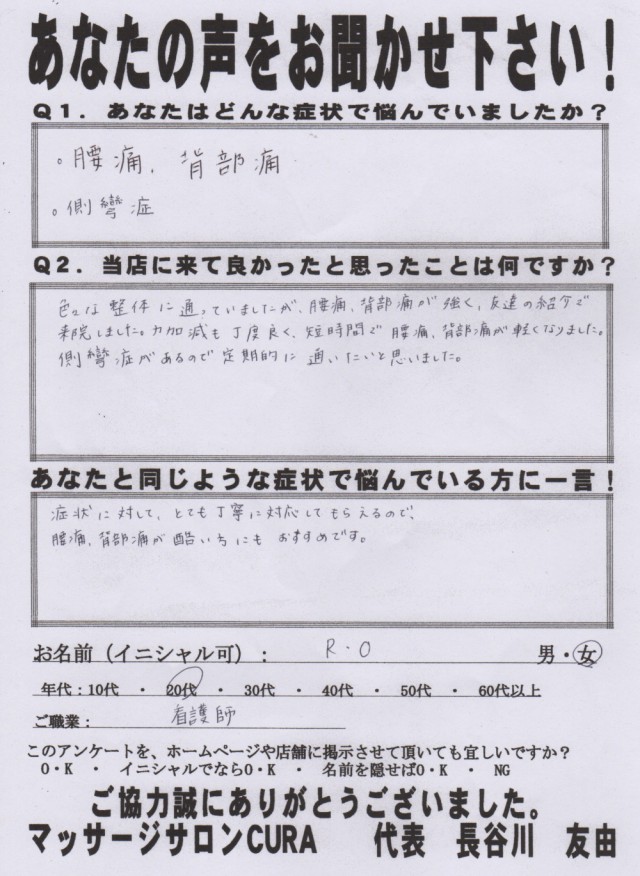 あなたの声をお聞かせ下さい!
Q1. あなたはどんな症状で悩んでいましたか?
。腰痛、背部痛
。側彎症
Q2. 当店に来て良かったと思ったことは何ですか?
色々な整体に通っていましたが、腰痛、背部痛が強く、友達の紹介で
来院しました。力加減も丁度良く、短時間で腰痛、背部痛が軽くなりました。
側彎症があるので定期的に通いたいと思いました。
あなたと同じような症状で悩んでいる方に一言!
症状に対して、とても丁寧に対応してもらえるので、
腰痛、背部痛が酷い方にもおすすめです。
お名前(イニシャル可): R.O 男・女
年代:10代 ・ 20代 ・ 30代 ・ 40代 ・ 50代 ・ 60代以上
ご職業: 看護師
このアンケートを、ホームページや店舗に掲示させて頂いても宜しいですか?
O・K ・ イニシャルでならO・K ・ 名前を隠せばO・K ・ NG
ご協力誠にありがとうございました。
マッサージサロンCURA 代表 長谷川 友由